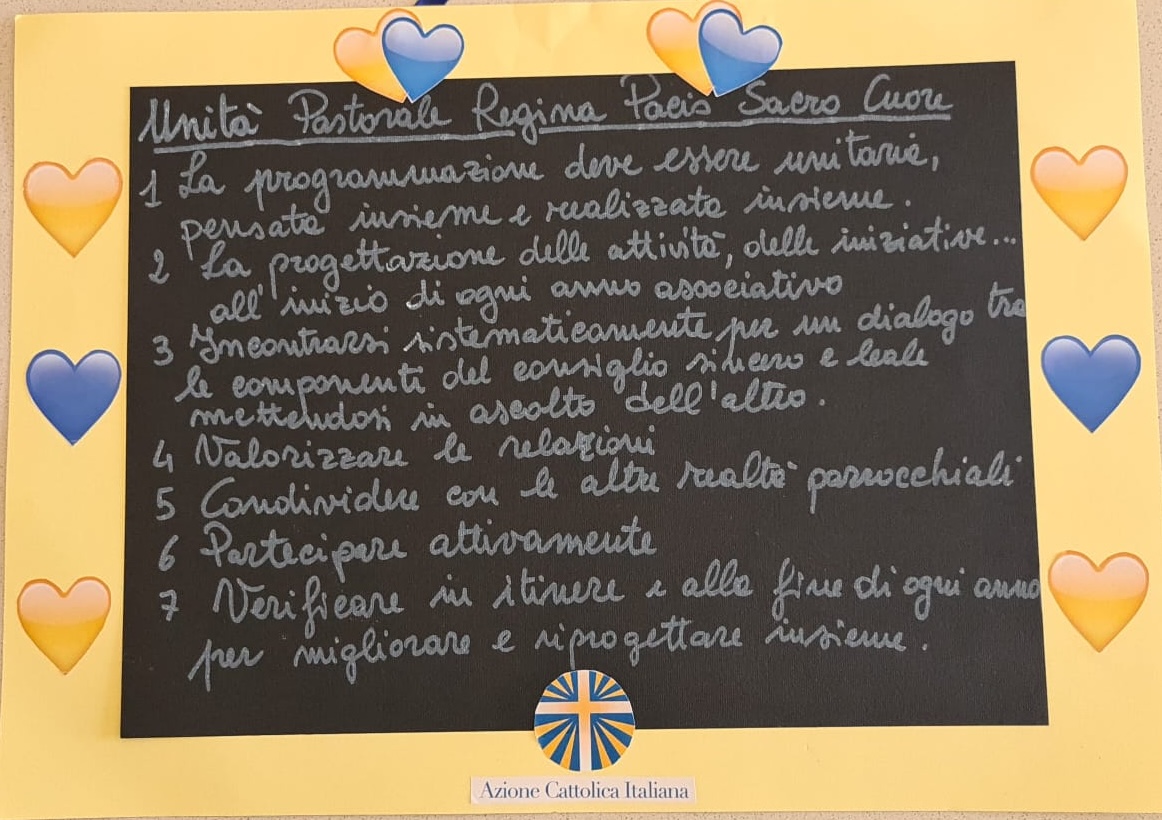 Unità Pastorale Regina Pacis Sacro Cuore
1 La programmazione deve essere unitaria,
pensata insieme e realizzata insieme.
2 La progettazione delle attività, delle iniziative...
all'inizio di ogni anno associativo
3 Incontrarsi sistematicamente per un dialogo tra
le componenti del consiglio sincero e leale
mettendosi in ascolto dell'altro.
4 Valorizzare le relazioni
5 Condividere con le altre realtà parrocchiali
6 Partecipare attivamente
7 Verificare in itinere e alla fine di ogni anno
per migliorare e riprogettare insieme.
Azione Cattolica Italiana